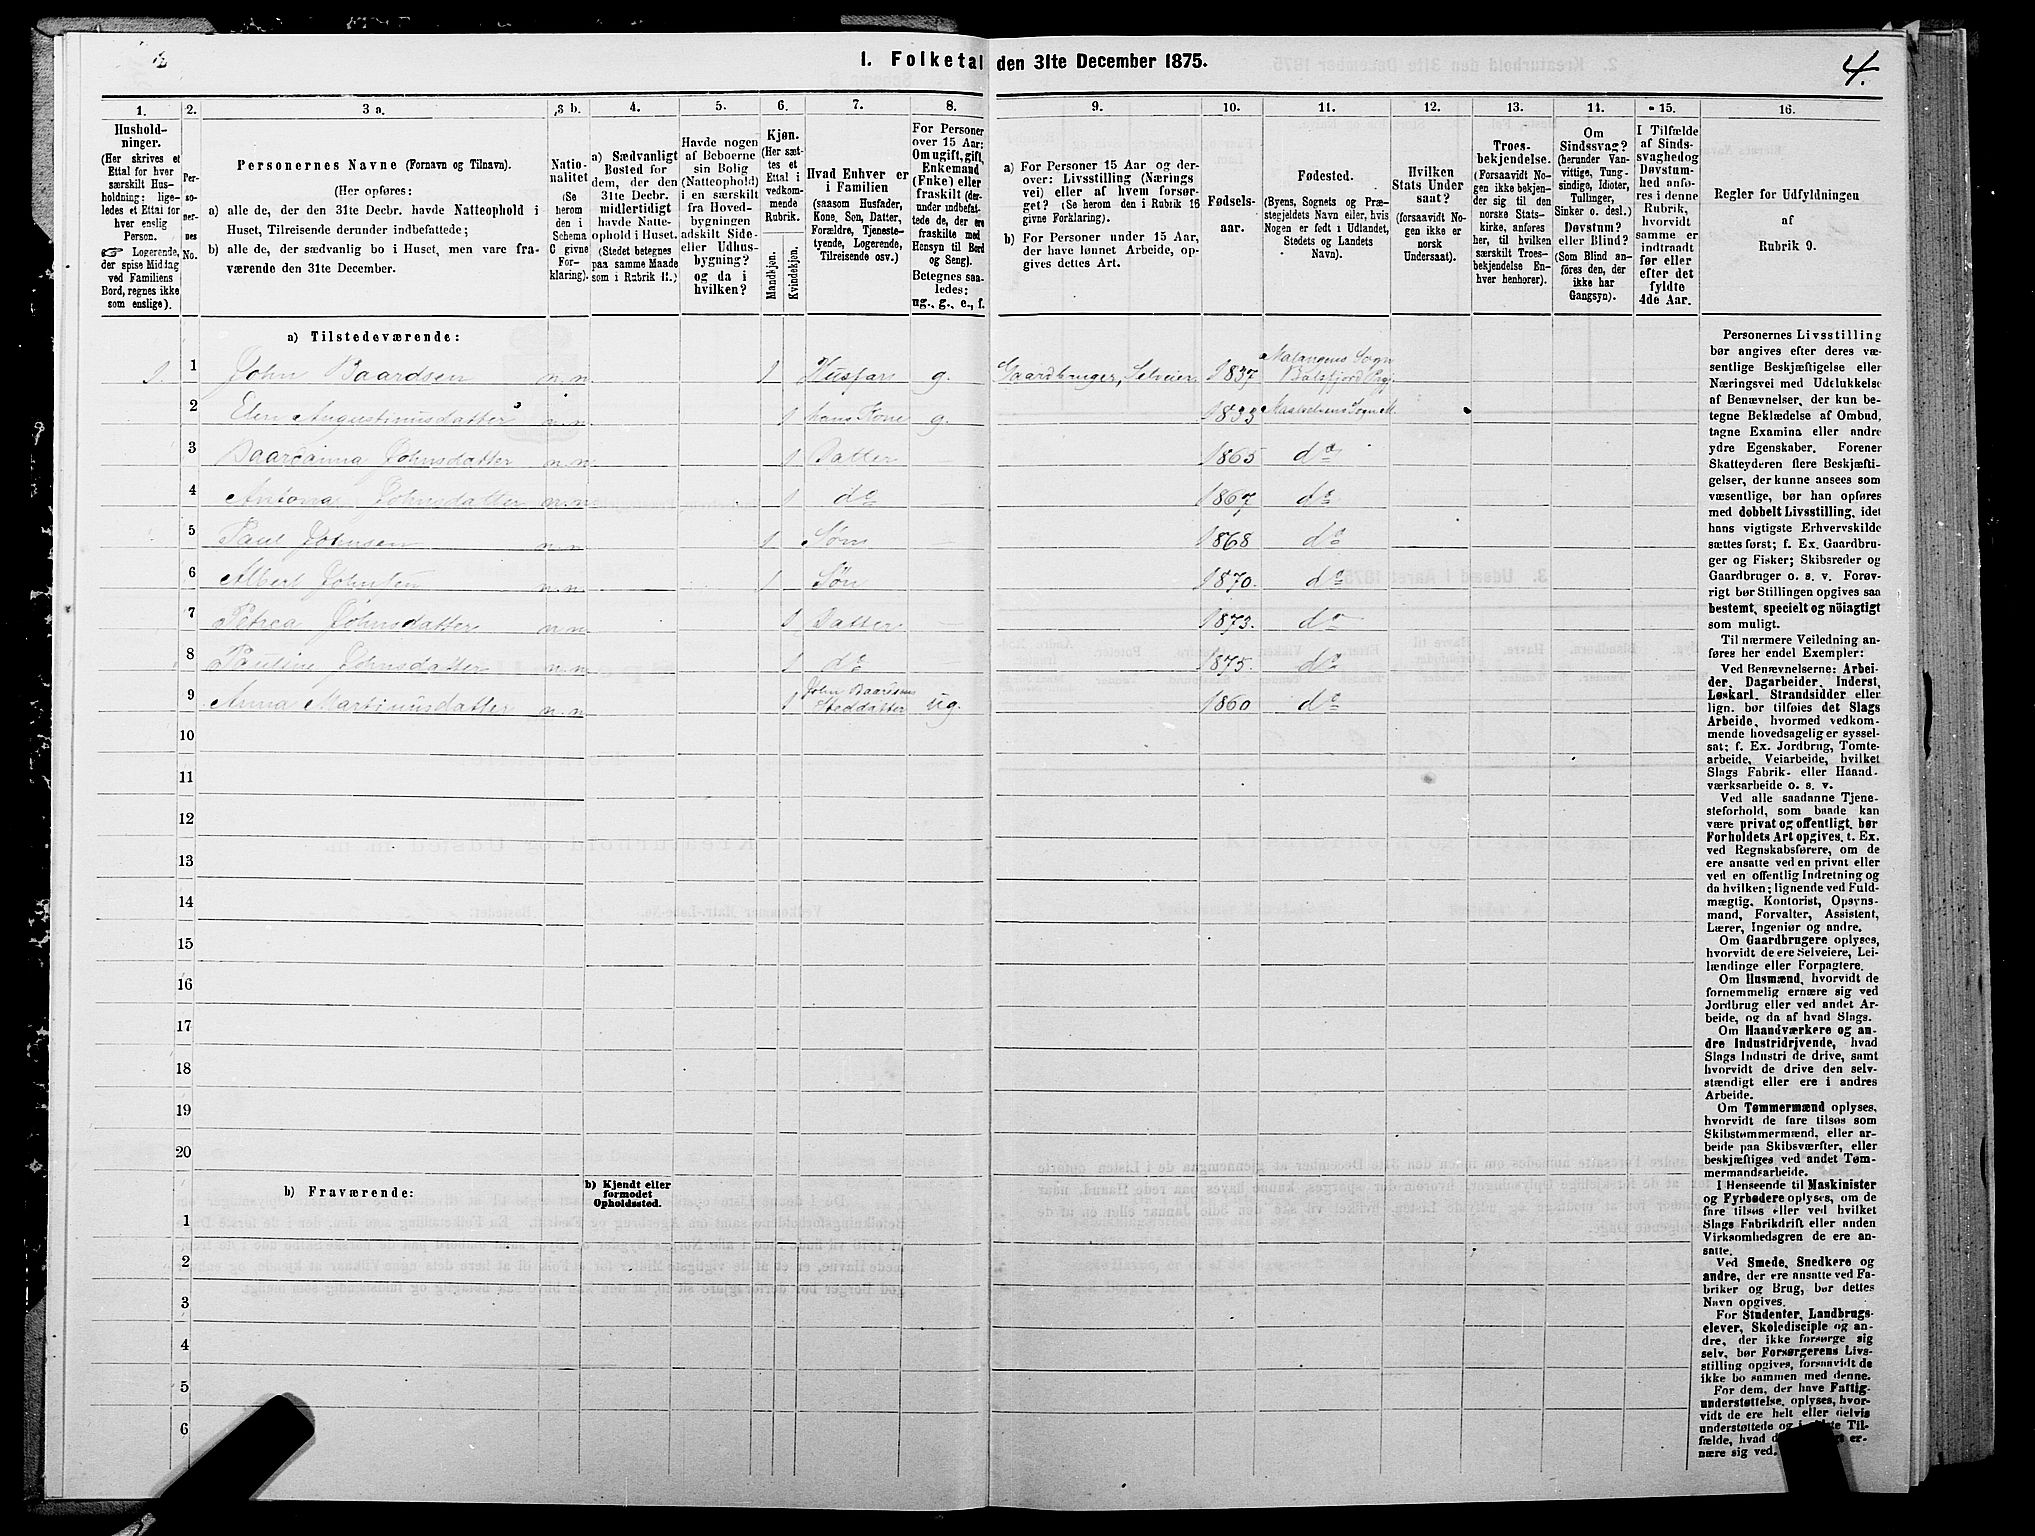 1. Folketal den 31te December 1875.
4.
1.
2.
3 a.
3 b.
4.
5.
6.
7.
8.
9.
10.
11.
12.
13.
15.
16.
Hushold-
ninger.
(Her skrives et
Ettal for hver
særskilt Hus-
holdning; lige-
ledes et Ettal for
hver enslig
Person.
☞ Logerende,
der spise Middag
ved Familiens
Bord, regnes ikke
som enslige).
Per-
so-
ner-
nes
No.
Personernes Navne (Fornavn og Tilnavn).
(Her opføres:
a) alle de, der den 31te Decbr. havde Natteophold i
Huset, Tilreisende derunder indbefattede;
b) alle de, der sædvanlig bo i Huset, men vare fra-
værende den 31te December.
Natio-
nalitet
(Se
herom
den i
Schema
C givne
For-
klaring).
a) Sædvanligt
Bosted for
dem, der den
31te Decbr.
midlertidigt
havde Natte-
ophold i Huset.
(Stedet betegnes
paa samme Maade
som i Rubrik 11.)
Havde nogen
af Beboerne
sin Bolig
(Natteophold)
i en særskilt
fra Hoved-
bygningen
adskilt Side-
eller Udhus-
bygning?
og da i
hvilken?
Kjøn.
(Her sæt-
tes et
Ettal i
vedkom-
mende
Rubrik.
Mandkjøn.
Kvindekjøn.
Hvad Enhver er
i Familien
(saasom Husfader,
Kone, Søn, Datter,
Forældre, Tjeneste-
tyende, Logerende,
Tilreisende osv.)
For Personer
over 15 Aar:
Om ugift, gift,
Enkemand
(Enke) eller
fraskilt (der-
under indbefat-
tede de, der ere
fraskilte med
Hensyn til Bord
og Seng).
Betegnes saa-
ledes:
ug., g., e., f.
a) For Personer 15 Aar og der-
over: Livsstilling (Nærings
vei) eller af hvem forsør-
get? (Se herom den i Rubrik 16
givne Forklaring).
b) For Personer under 15 Aar,
der have lønnet Arbeide, op-
gives dettes Art.
Fødsels-
aar.
Fødested.
(Byens, Sognets og Præ-
stegjeldets Navn eller, hvis
Nogen er født i Udlandet,
Stedets og Landets
Navn).
Hvilken
Stats Under
saat?
(forsaavidt No-
gen ikke er
norsk
Undersaat).
Troes-
bekjendelse.
(Forsaavidt No-
gen ikke bekjen-
der sig til den
norske Stats-
kirke, anføres
her, til hvilken
særskilt Troes-
bekjendelse En-
hver henhører).
Om
Sindssvag?
(herunder Van-
vittige, Tung-
sindige, Idioter,
Tullinger,
Sinker o. desl.)
Døvstum?
eller Blind?
(Som Blind an-
føres den, der
ikke har
Gangsyn).
I Tilfælde
af Sinds-
svaghed og
Døvstum-
hed anfø-
res i denne
Rubrik,
hvorvidt
samme er
indtraadt
før eller
efter det
fyldte
4de Aar.
Regler for Udfyldningen
af
Rubrik 9.
a) Tilstedeværende:
1. 1 John Baardsen n.n. 1 Husfar g. Gaardbruger, Selveier 1837 Malangens Sogn Balsfjord Prgj.
2 Elen Augustinusdatter n.n. 1 hans Kone g. 1833
3 Baardanna Johnsdatter n.n. 1 Datter 1865 do
4 Antona Johnsdatter n.n. 1 do 1867 do
5 Paul Johnsen n.n. 1 Søn 1868 do
6 Albert Johnsen n.n. 1 Søn 1870. do
7 Petrea Johnsdatter n.n. 1 Datter 1873. do
8 Pauline Johnsdatter n.n. 1 do 1875. do
9 Anna Martinusdatter n.n. 1 John Baardsens Steddatter ug. 1860 do
10
11
12
13
14
15
16
17
18
19
20
b) Fraværende:
b) Kjendt eller
formodet
Opholdssted.
1
2
3
4
5
6
Personernes Livsstilling
bør angives efter deres væ-
sentlige Beskjæftigelse eller
Næringsvei med Udelukkelse
af Benævnelser, der kun be-
tegne Beklædelse af Ombud,
tagne Examina eller andre
ydre Egenskaber. Forener
Skatteyderen flere Beskjæfti-
gelser, der kunne ansees som
væsentlige, bør han opføres
med dobbelt Livsstilling, idet
hans vigtigste Erhvervskilde
sættes først; f. Ex. Gaardbru-
ger og Fisker; Skibsreder og
Gaardbruger o. s. v. Forøv-
rigt bør Stillingen opgives saa
bestemt, specielt og nöiagtigt
som muligt.
Til nærmere Veiledning an-
føres her endel Exempler:
Ved Benævnelserne: Arbei-
der, Dagarbeider, Inderst,
Løskarl, Strandsidder eller
lign. bør tilføies det Slags
Arbeide, hvormed vedkom-
mende hovedsagelig er syssel-
sat; f. Ex. Jordbrug, Tomte-
arbeide, Veiarbeide, hvilket
Slags Fabrik- eller Haand-
værksarbeide o. s. v.
Ved alle saadanne Tjene-
steforhold, som baade kan
være privat og offentligt, bør
Forholdets Art opgives, t. Ex.
ved Regnskabsførere, om de
ere ansatte ved en privat eller
ved en offentlig Indretning og
da hvilken; lignende ved Fuld-
mægtig, Kontorist, Opsyns-
mand, Forvalter, Assistent,
Lærer, Ingeniør og andre.
Om Gaardbrugere oplyses,
hvorvidt de ere Selveiere, Lei-
lændinge eller Forpagtere.
Om Husmænd, hvorvidt de
fornemmelig ernære sig ved
Jordbrug eller ved andet Ar-
beide, og da af hvad Slags.
Om Haandværkere og an-
dre Industridrivende, hvad
Slags Industri de drive, samt
hvorvidt de drive den selv-
stændigt eller ere i andres
Arbeide.
Om Tømmermænd oplyses,
hvorvidt de fare tilsøs som
Skibstømmermænd, eller ar-
beide paa Skibsværfter, eller
beskjæftiges ved andet Tøm-
mermandsarbeide.
I Henseende til Maskinister
og Fyrbødere oplyses, om de
fare tilsøs eller ved hvilket
Slags Fabrikdrift eller anden
Virksomhedsgren de ere an-
satte.
Ved Smede, Snedkere og
andre, der ere ansatte ved Fa-
briker og Brug, bør dettes
Navn opgives.
For Studenter, Landbrugs-
elever, Skoledisciple og an-
dre, der ikke forsørge sig
selv, bør Forsørgerens Livs-
stilling opgives, forsaavidt de
ikke bo sammen med denne.
For dem, der have Fattig-
understøttelse, oplyses, hvor-
vidt de ere helt eller delvis
understøttede og i Til-
fælde, hvad er-
nære sig ved.